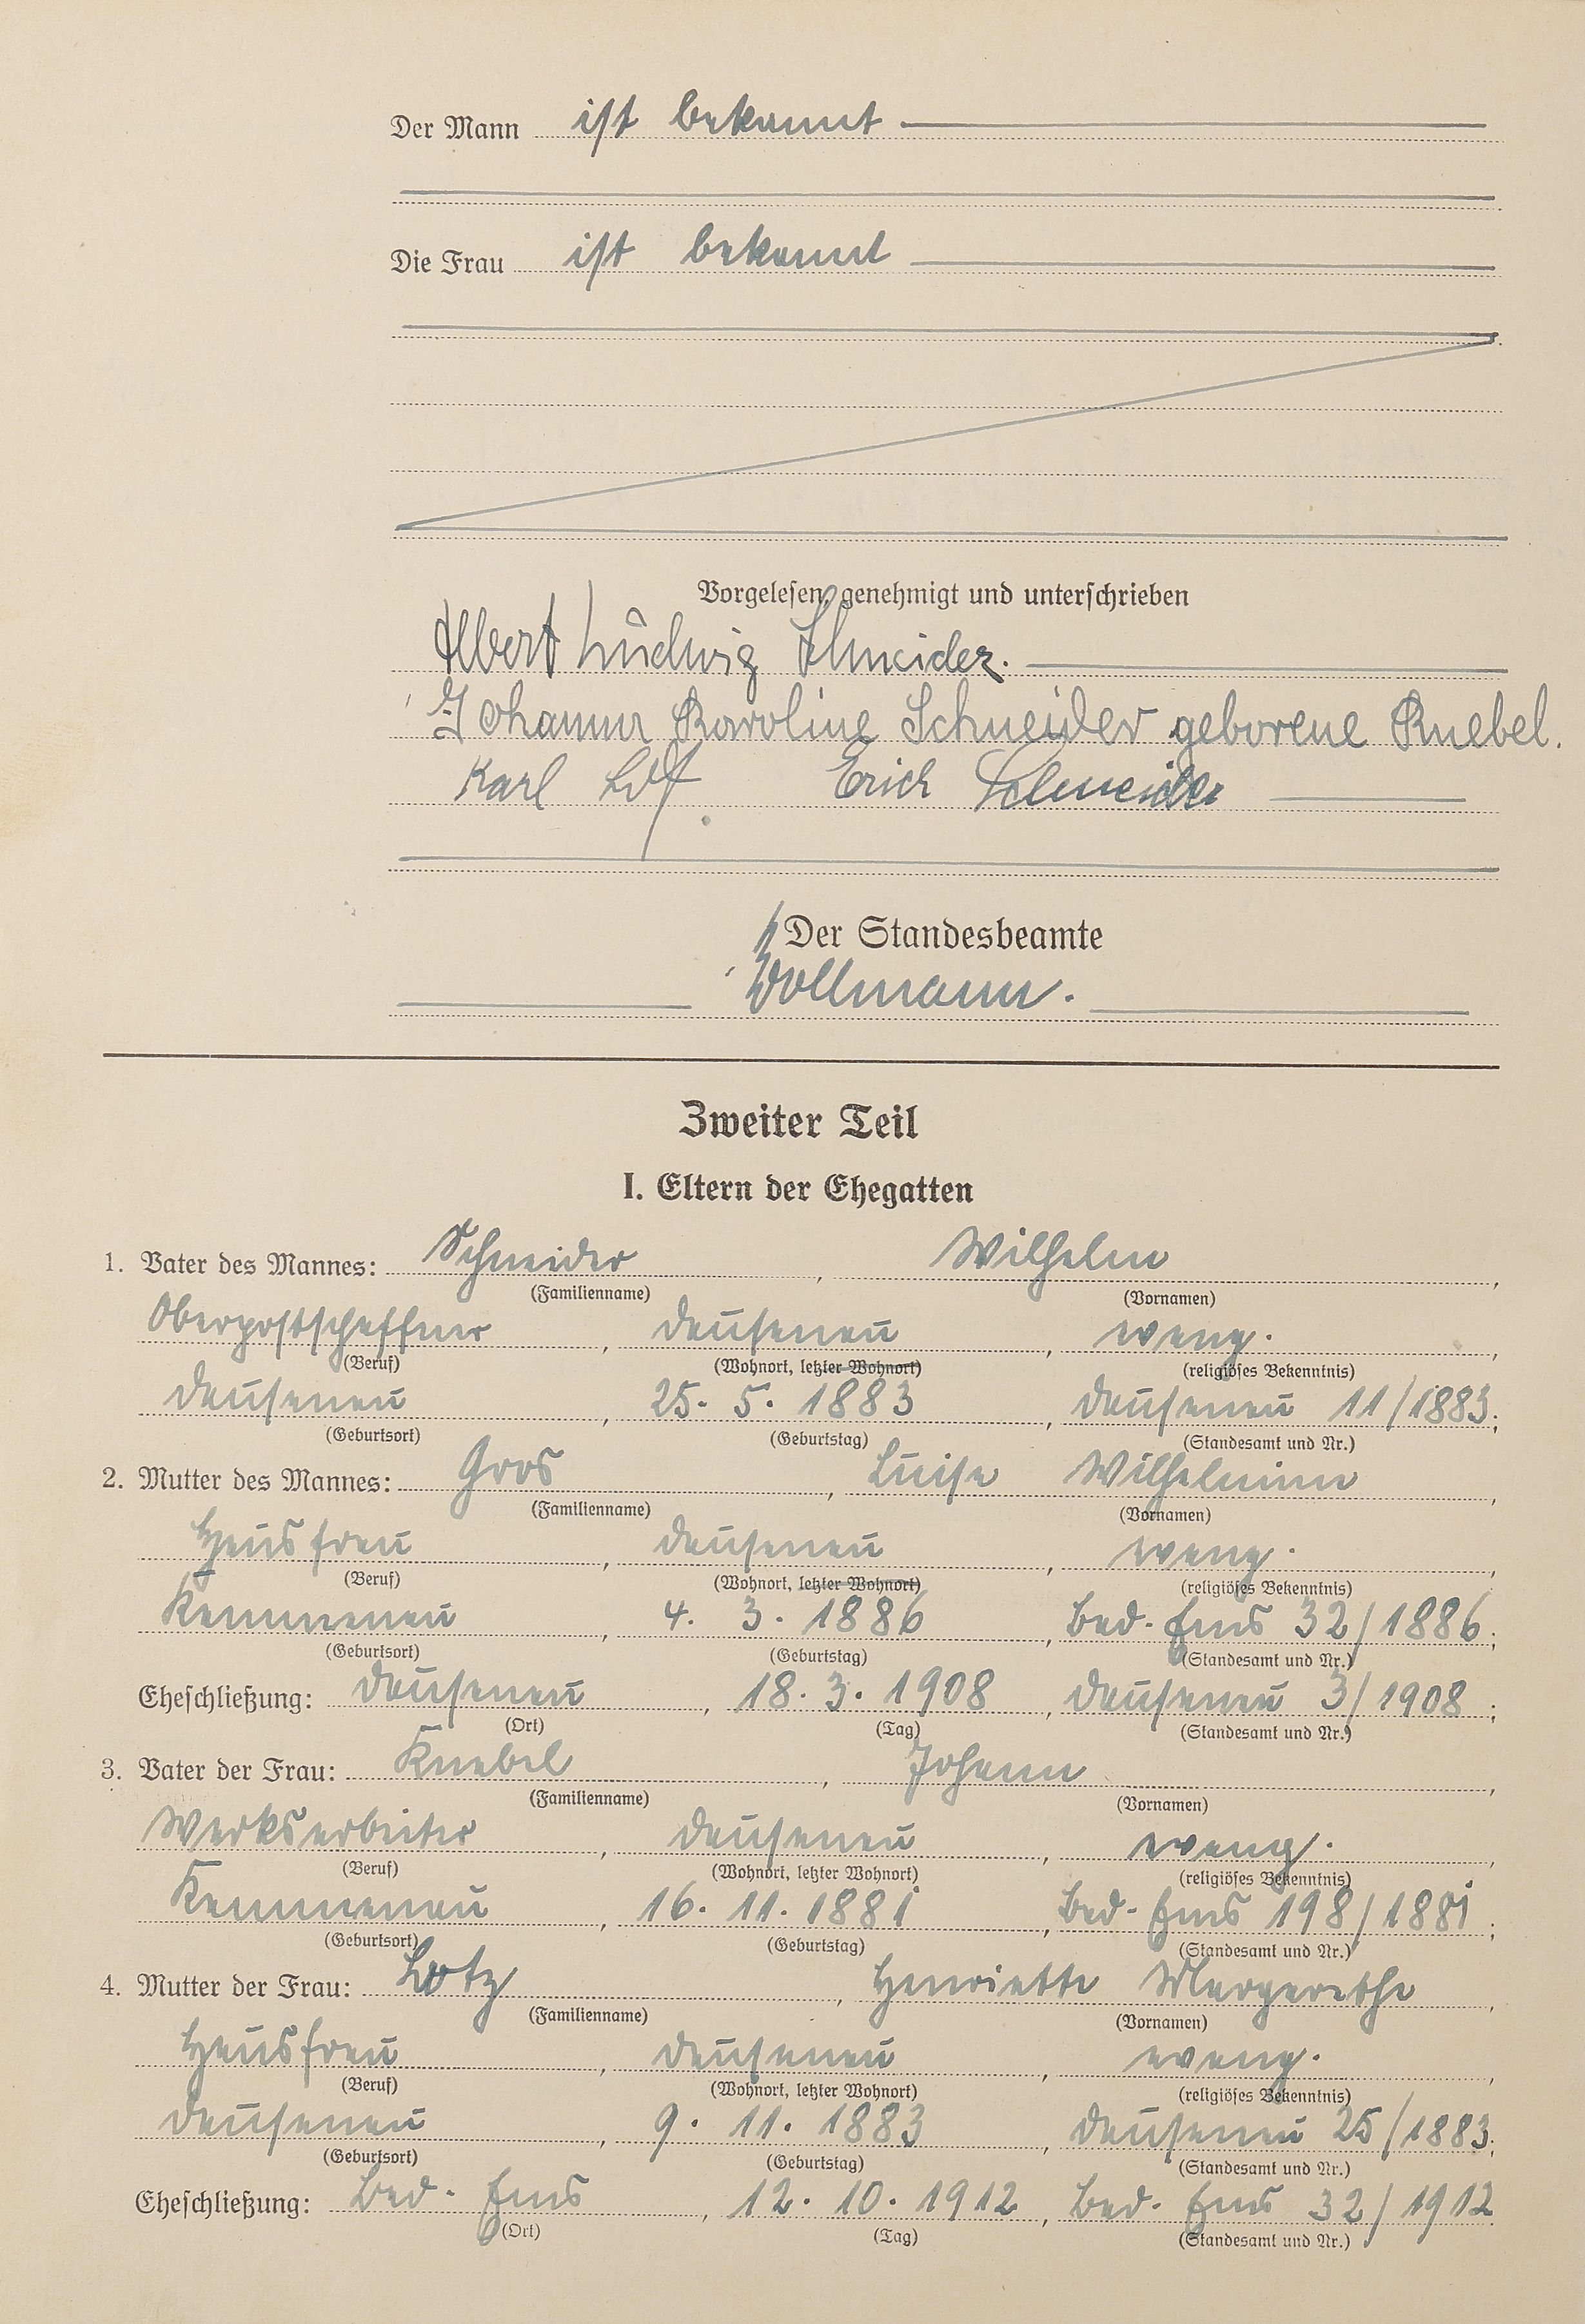 Der Mann ist bekannt
Die Frau ist bekannt
Vorgelesen, genehmigt und unterschrieben
Albert Ludwig Schneider.
Johanna Karoline Schneider geborene Knebel.
Karl Erich Schneider
Der Standesbeamte
Wollmann.
Zweiter Teil
I. Eltern der Ehegatten
1. Vater des Mannes: Schneider, Wilhelm,
(Familienname) (Vornamen)
Oberpostschaffner, Dausenau, evang.,
(Beruf) (Wohnort, letzter Wohnort) (religiöses Bekenntnis)
Dausenau, 25. 5. 1883, Dausenau 11/1883;
(Geburtsort) (Geburtstag) (Standesamt und Nr.)
2. Mutter des Mannes: Gros, Luise Wilhelmine,
(Familienname) (Vornamen)
Hausfrau, Dausenau, evang.,
(Beruf) (Wohnort, letzter Wohnort) (religiöses Bekenntnis)
Kemmenau, 4. 3. 1886, Bad-Ems 32/1886;
(Geburtsort) (Geburtstag) (Standesamt und Nr.)
Eheschließung: Dausenau, 18. 3. 1908, Dausenau 3/1908;
(Ort) (Tag) (Standesamt und Nr.)
3. Vater der Frau: Knebel, Johann,
(Familienname) (Vornamen)
Werksarbeiter, Dausenau, evang.,
(Beruf) (Wohnort, letzter Wohnort) (religiöses Bekenntnis)
Kemmenau, 16. 11. 1881, Bad-Ems 198/1881;
(Geburtsort) (Geburtstag) (Standesamt und Nr.)
4. Mutter der Frau: Lotz, Henriette Margarethe,
(Familienname) (Vornamen)
Hausfrau, Dausenau, evang.,
(Beruf) (Wohnort, letzter Wohnort) (religiöses Bekenntnis)
Dausenau, 9. 11. 1883, Dausenau 25/1883;
(Geburtsort) (Geburtstag) (Standesamt und Nr.)
Eheschließung: Bad-Ems, 12. 10. 1912, Bad-Ems 32/1912
(Ort) (Tag) (Standesamt und Nr.)